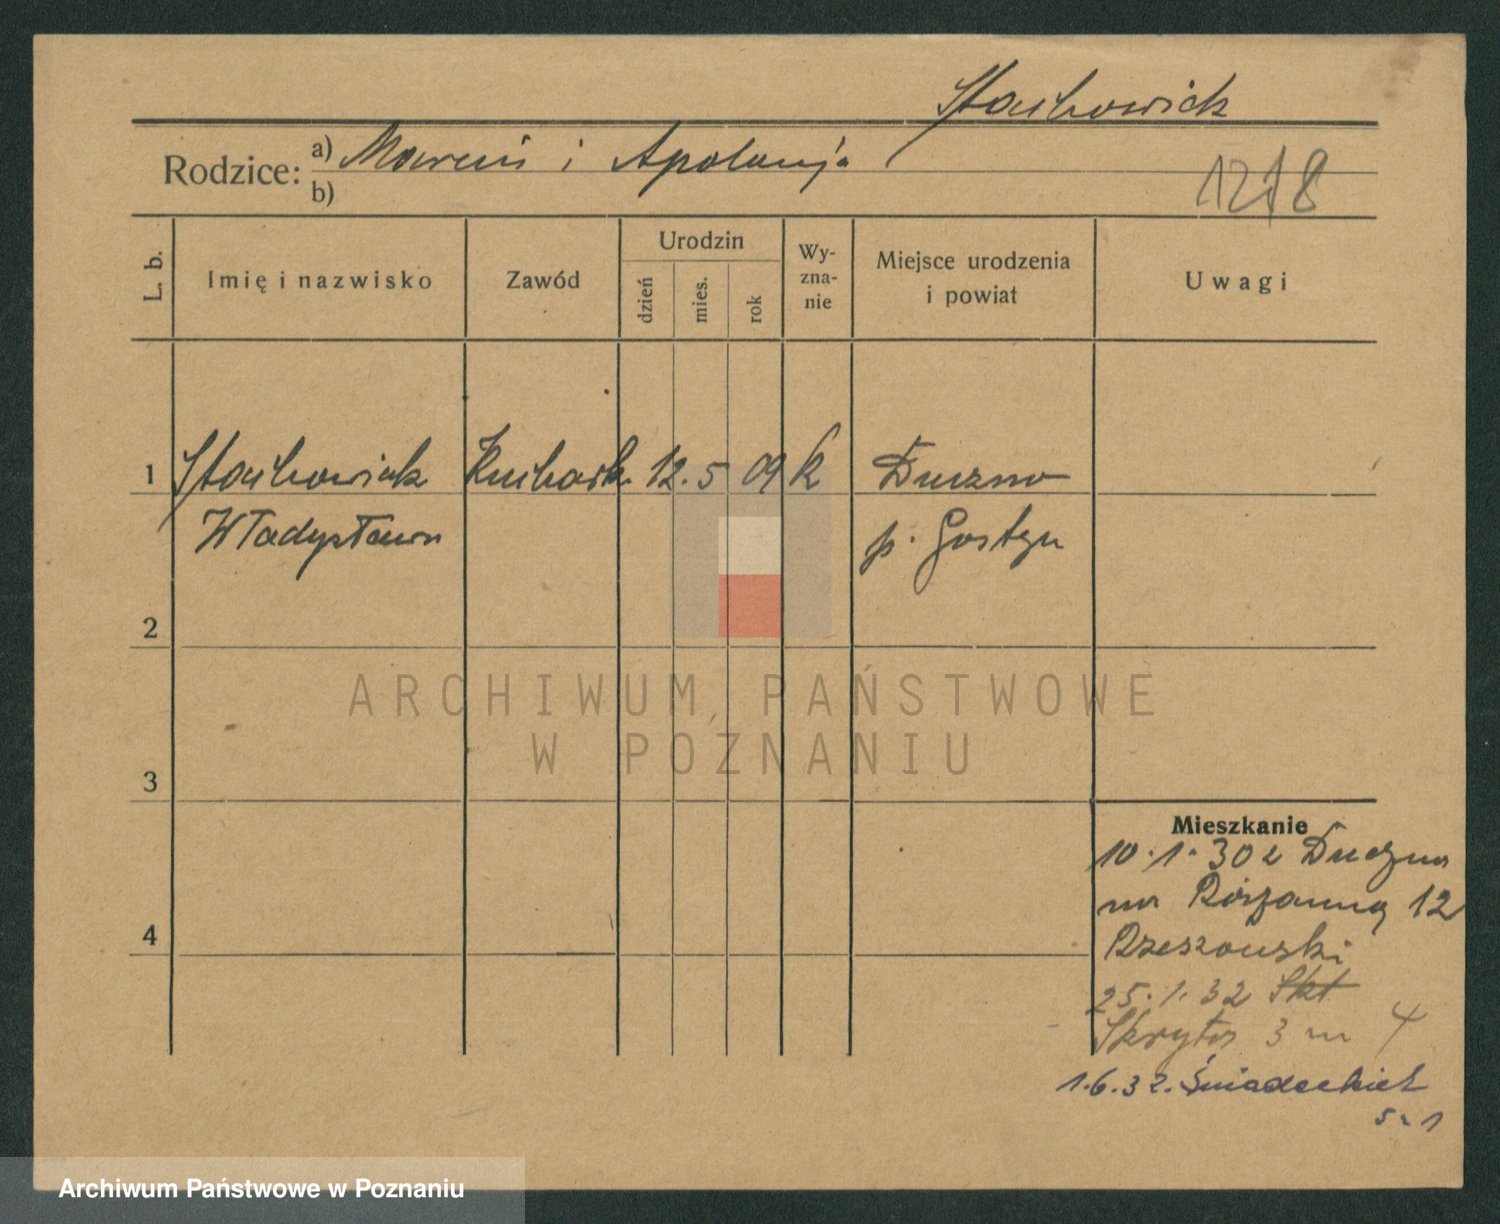 Stachowiak
Rodzice: a) Marcin i Apolonja
b)
1218
L. b.
Imię i nazwisko
Zawód
Urodzin
dzień
mies.
rok
Wy-
zna-
nie
Miejsce urodzenia
i powiat
Uwagi
1 Stachowiak Kuchark. 12. 5 09 k Duczno
Władysława p. Gostyn
2
3
4
ARCHIWUM PAŃSTWOWE
W POZNANIU
Mieszkanie
10.1.30 z
na Różanną 12
Rzeszowski
25.1.32 Skt
Skryta 3 m 4
1.6.32. Śniadeckich
Archiwum Państwowe w Poznaniu